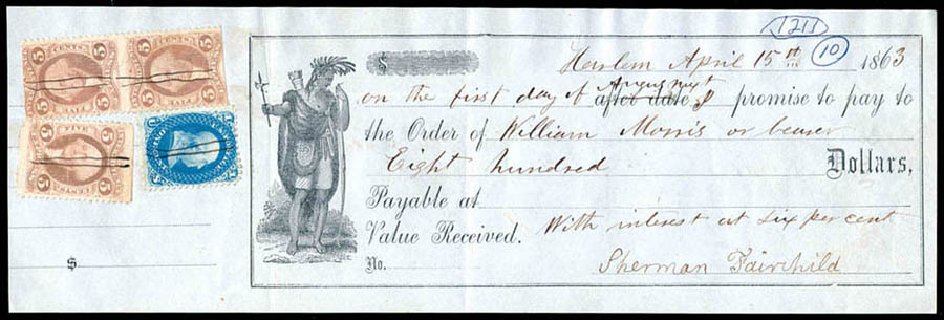 1211
10
$
Harlem April 15th 1863
August next
on the first day of after date I promise to pay to
the Order of William Morris or bearer
Eight hundred Dollars,
Payable at
Value Received. With interest at six per cent
No.
Sherman Fairchild
$
5 CENTS 5
5 5
FIVE
5 CENTS 5